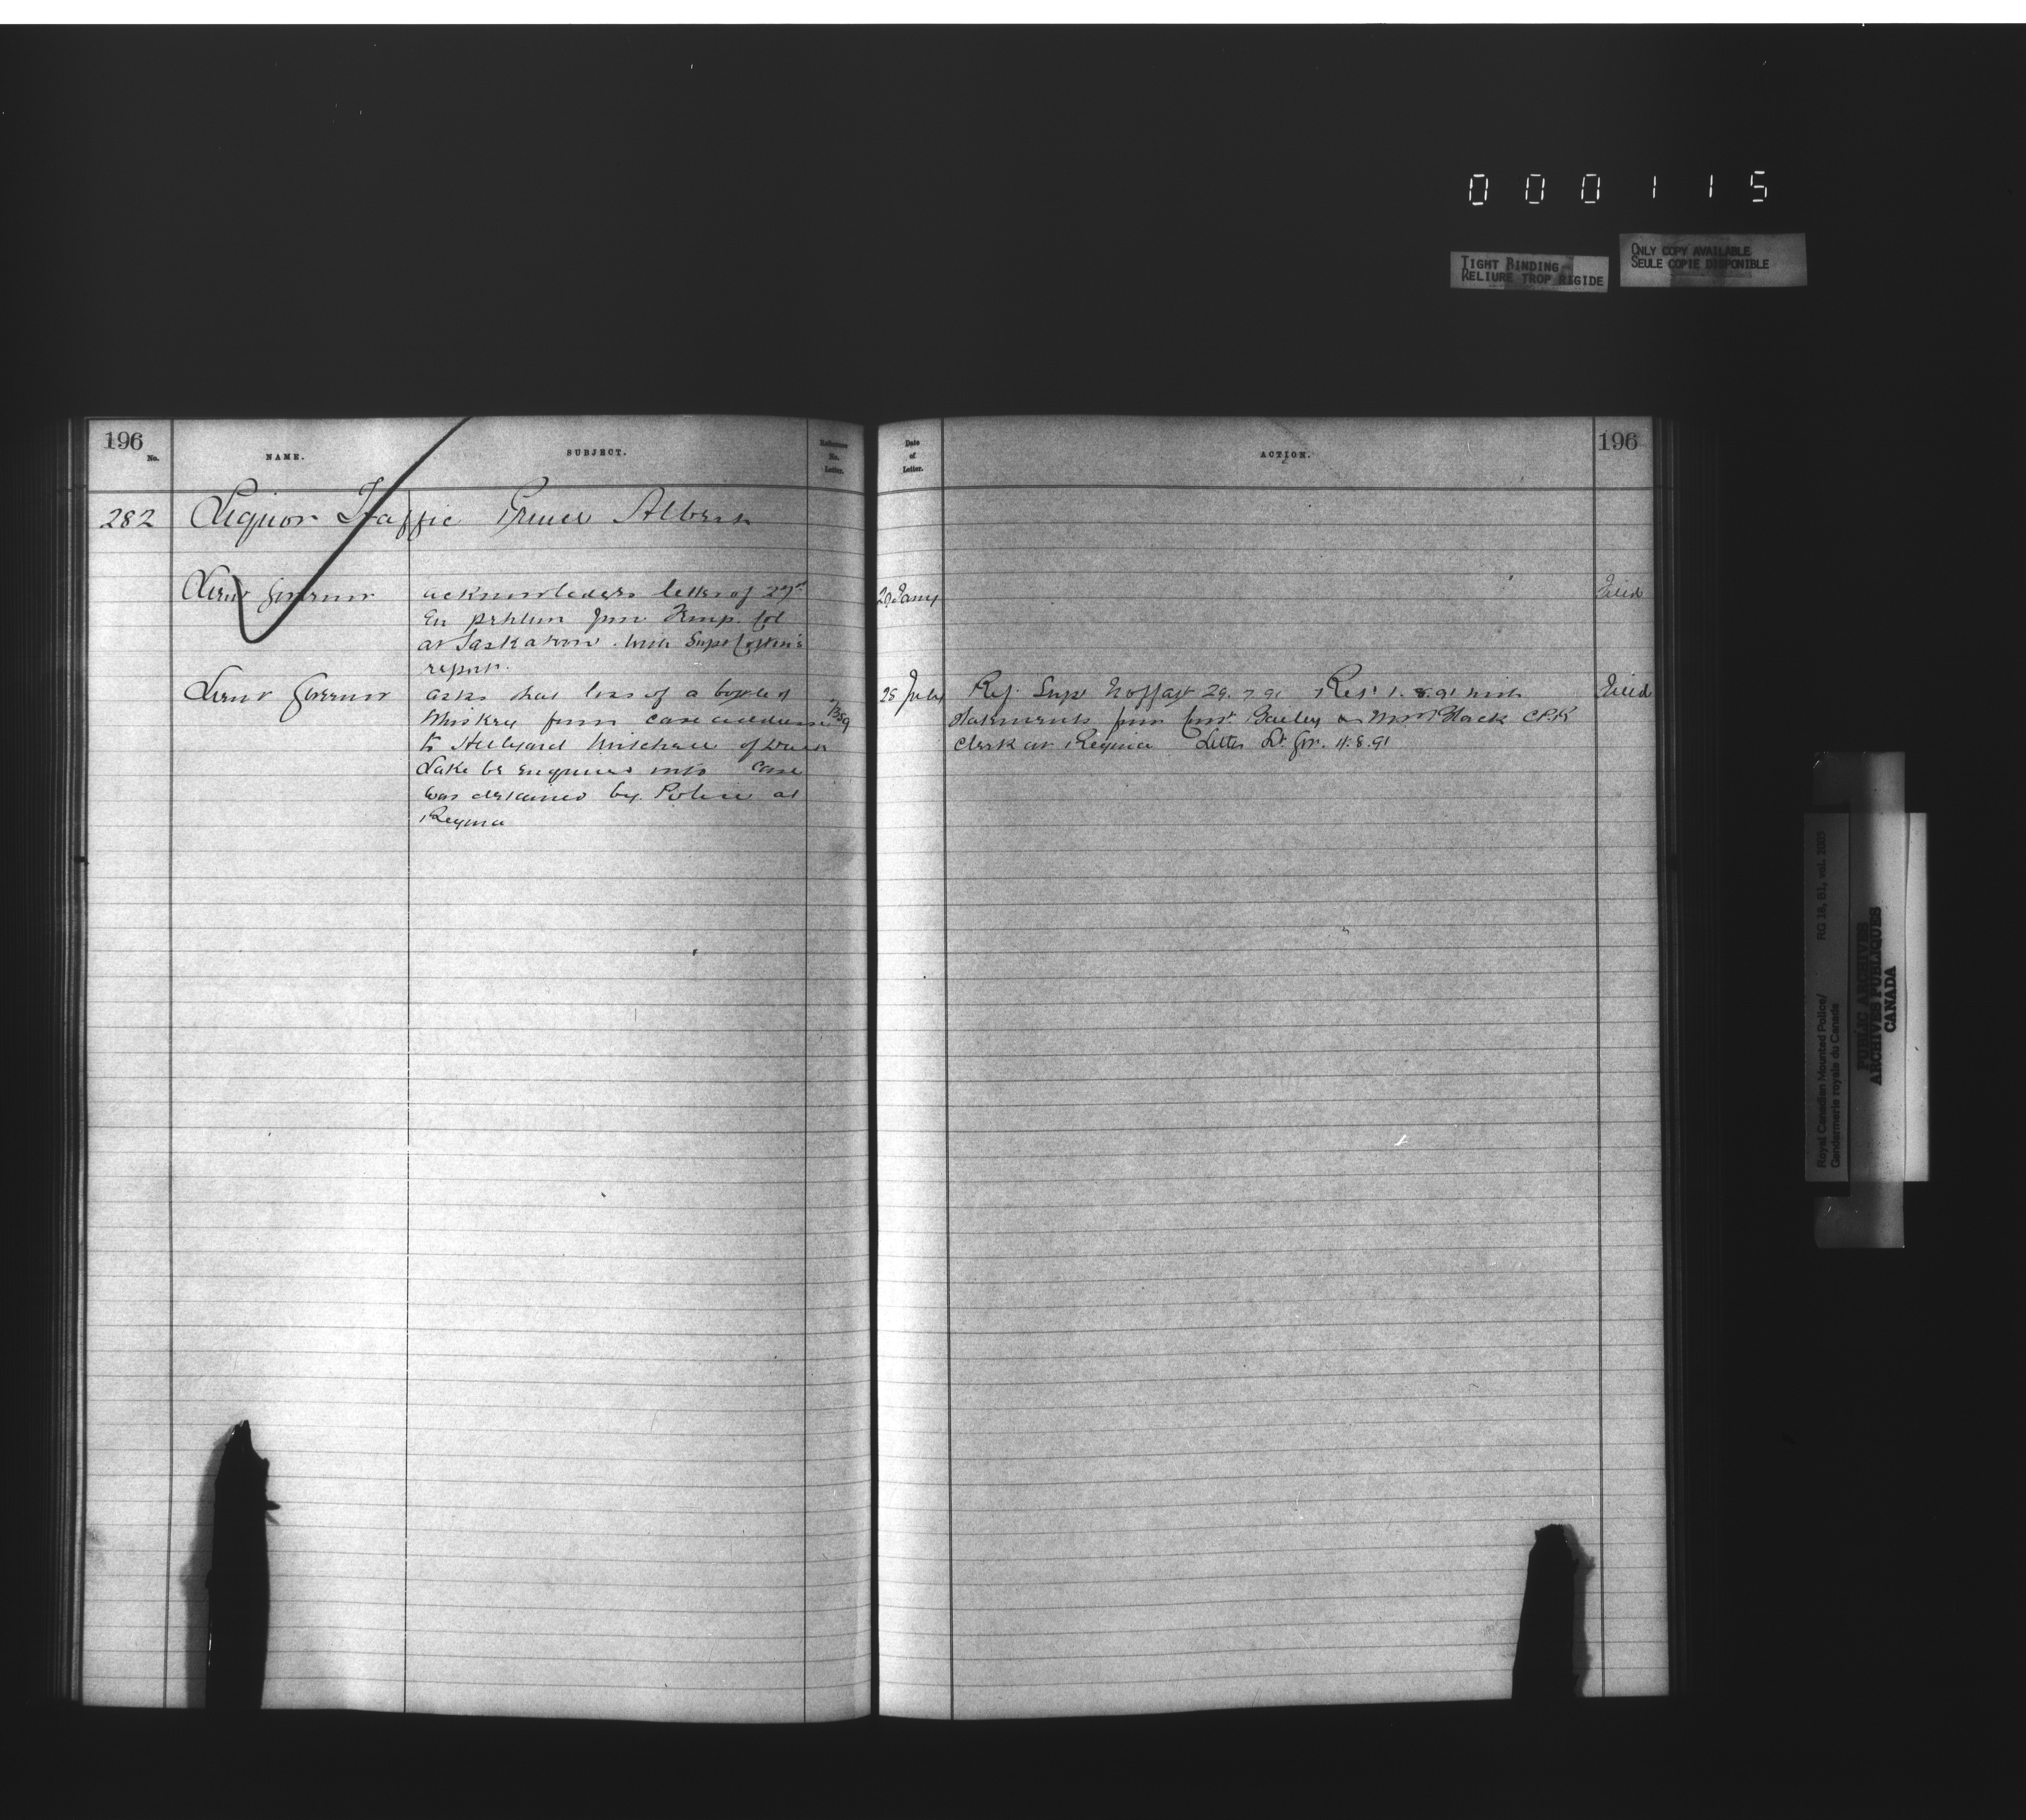 000115
TIGHT BINDING
RELIURE TROP RIGIDE
ONLY COPY AVAILABLE
SEULE COPIE DISPONIBLE
196
No.
NAME.
SUBJECT.
Reference
No.
Letter.
282 Liquor Traffic Prince Albert
Lieut Governor
acknowledges letter of 27th
petition from Temp. Col
at Saskatoon with Supt
report.
Lieut Governor
asks that loss of a bottle of
Whiskey from case addressed
to Hillyard Mitchell of Duck
Lake be enquired into case
was detained by Police at
Regina
Date
of
Letter.
ACTION.
196
29 Jany
Filed
25 July
Ref. Supt Moffatt 29.7.91 Ret 1.8.91 with
statements from Const Bailey & Black C.P.R
clerk at Regina Letter Lt Gov. 11.8.91
Filed
Royal Canadian Mounted Police/
Gendarmerie royale du Canada
RG 18, B1, vol.
PUBLIC ARCHIVES
ARCHIVES PUBLIQUES
CANADA